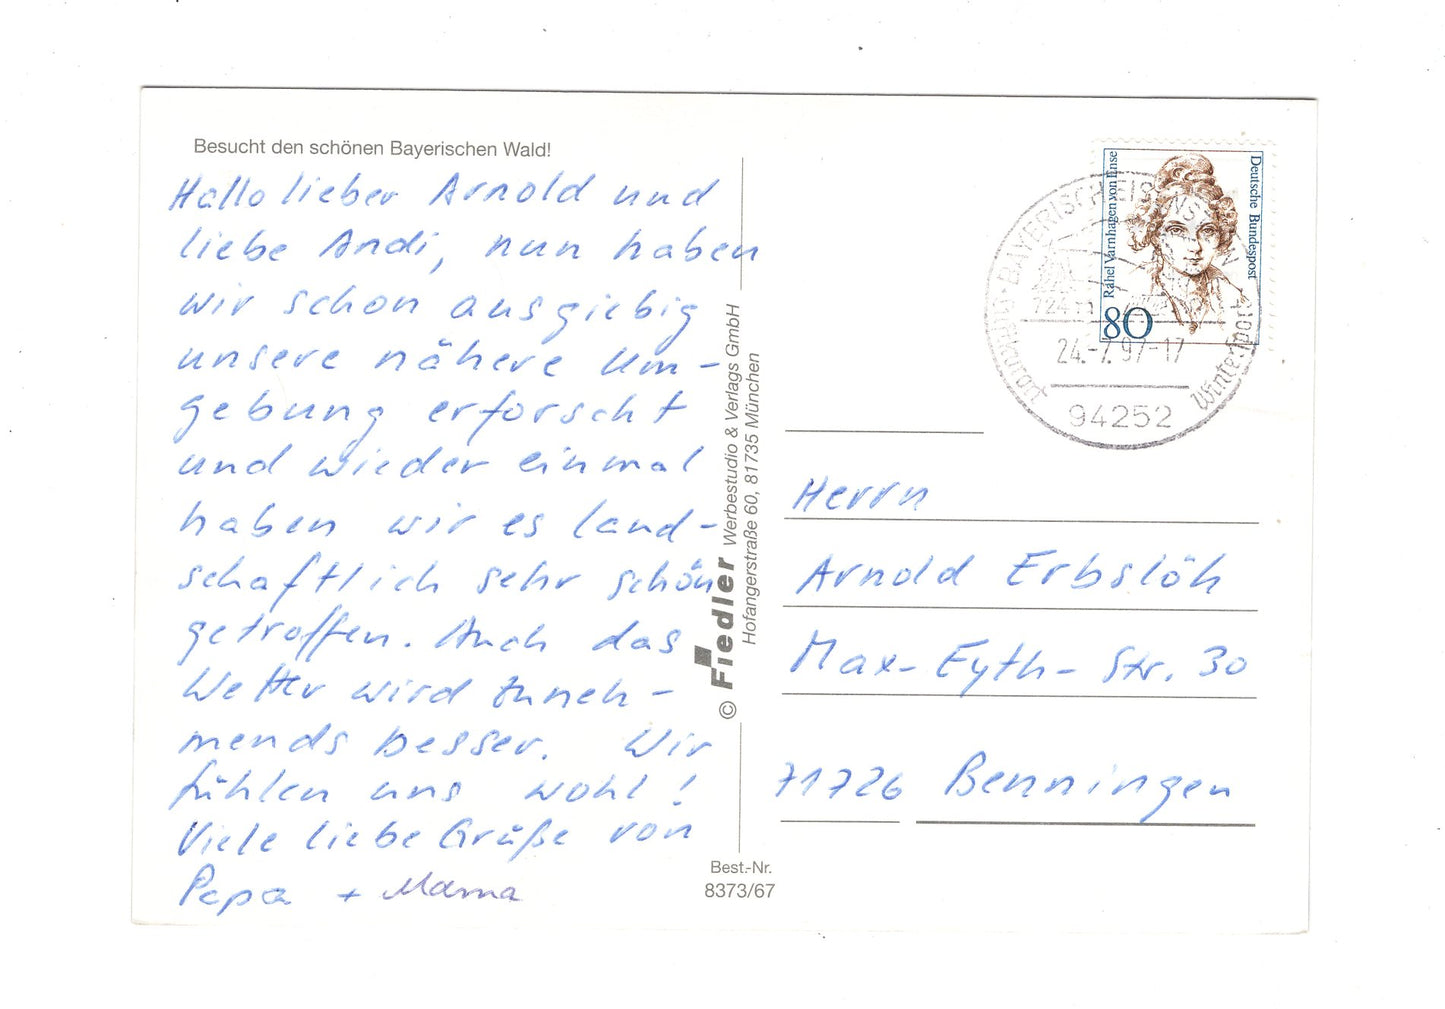 Besucht den schönen Bayerischen Wald!
Hallo lieber Arnold und
liebe Andi, nun haben
wir schon ausgiebig
unsere nähere Um-
gebung erforscht
und wieder einmal
haben wir es land-
schaftlich sehr schön
getroffen. Auch das
Wetter wird zuneh-
mends besser. Wir
fühlen uns wohl!
Viele liebe Grüße von
Papa + Mama
© Fiedler Werbestudio & Verlags GmbH
Hofangerstraße 60, 81735 München
Best.-Nr.
8373/67
Deutsche Bundespost
Rahel Varnhagen von Ense
80
BAYERISCH EISENSTEIN
24.-7.97-17
94252
Winter
Herrn
Arnold Erbslöh
Max-Eyth-Str. 30
71726 Benningen